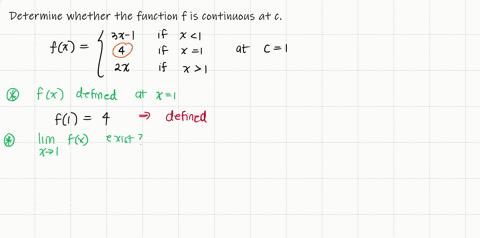 Determine whether the function f is continuous at c.
f(x) = { 3x-1 if x < 1
4 if x = 1 at c = 1
2x if x > 1
⊛ f(x) defined at x = 1
f(1) = 4 → defined
⊛ lim f(x) exist ?
x→1